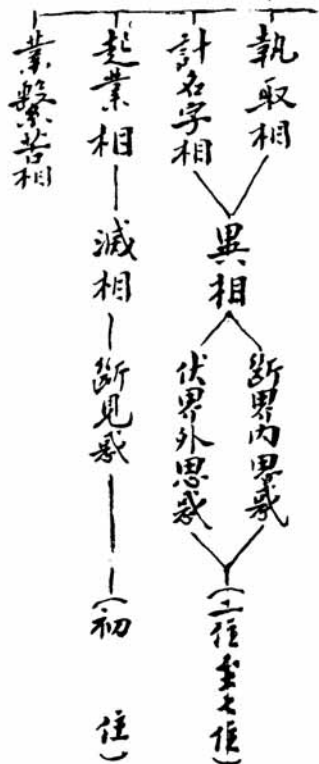 執取相
計名字相
異相
斷界內思惑
伏界外思惑
(二住至七住)
起業相
滅相
斷見惑
(初住)
業繫苦相